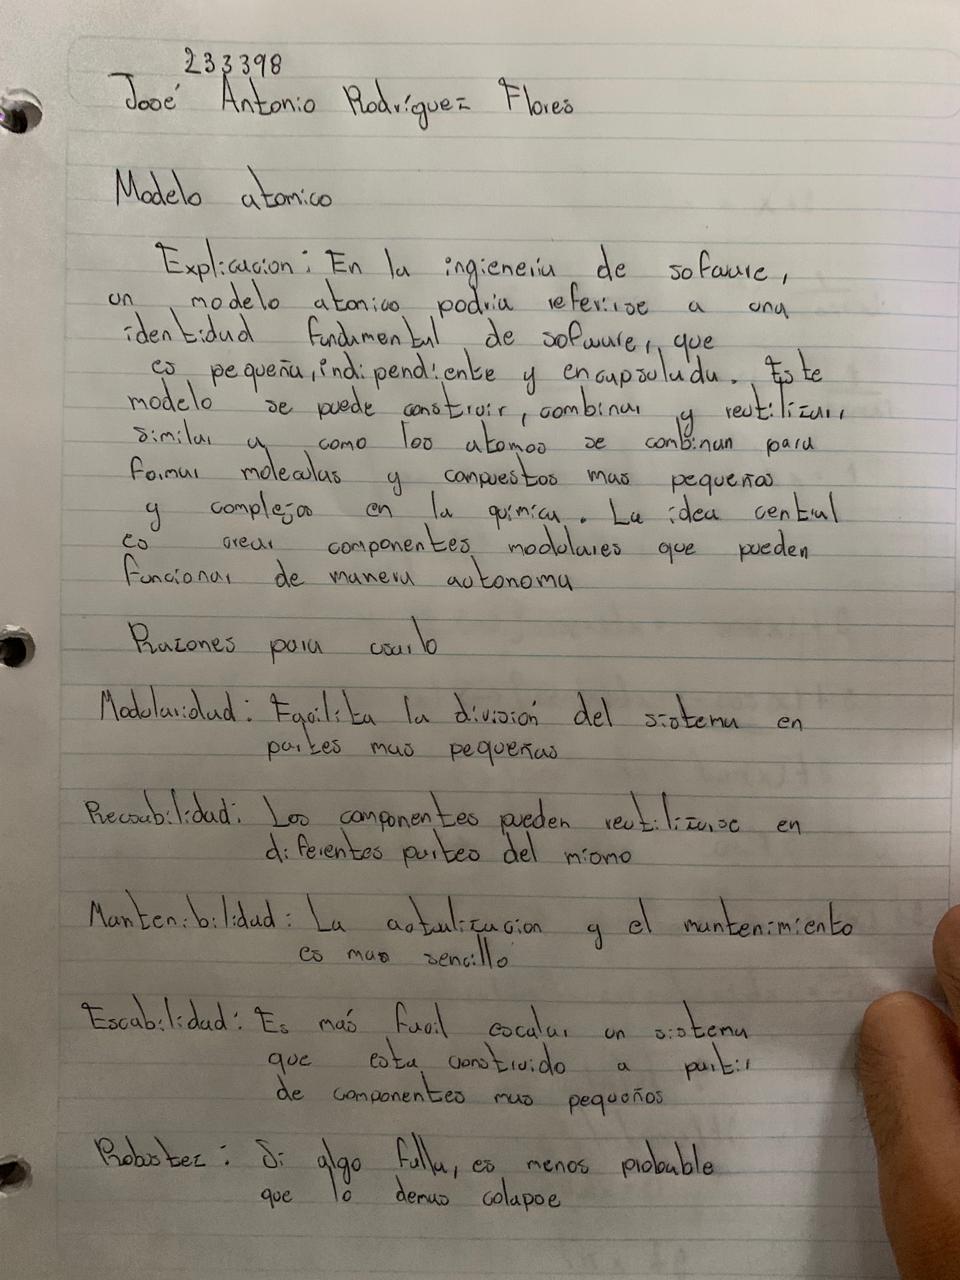 233398
José Antonio Rodríguez Flores
Modelo atomico
Explicacion: En la ingieneria de sofware,
un modelo atonico podria referirse a una
identidad fundamental de sofware, que
es pequeña, indipendiente y encapsulada. Este
modelo se puede construir, combinar y reutilizar,
similar a como los atomos se combinan para
formar moleculas y conpuestos mas pequeños
y complejos en la química. La idea central
es crear componentes modulares que pueden
funcionar de manera autonoma
Razones para usarlo
Modularidad: Facilita la división del sistema en
partes mas pequeñas
Recsabilidad: Los componentes pueden reutilizarse en
diferentes partes del mismo
Mantenibilidad: La actulizacion y el mantenimiento
es mas sencillo
Escabilidad: Es más facil escalar un sistema
que esta construido a partir
de componentes mas pequeños
Robustez: Si algo falla, es menos probable
que lo demas colapse